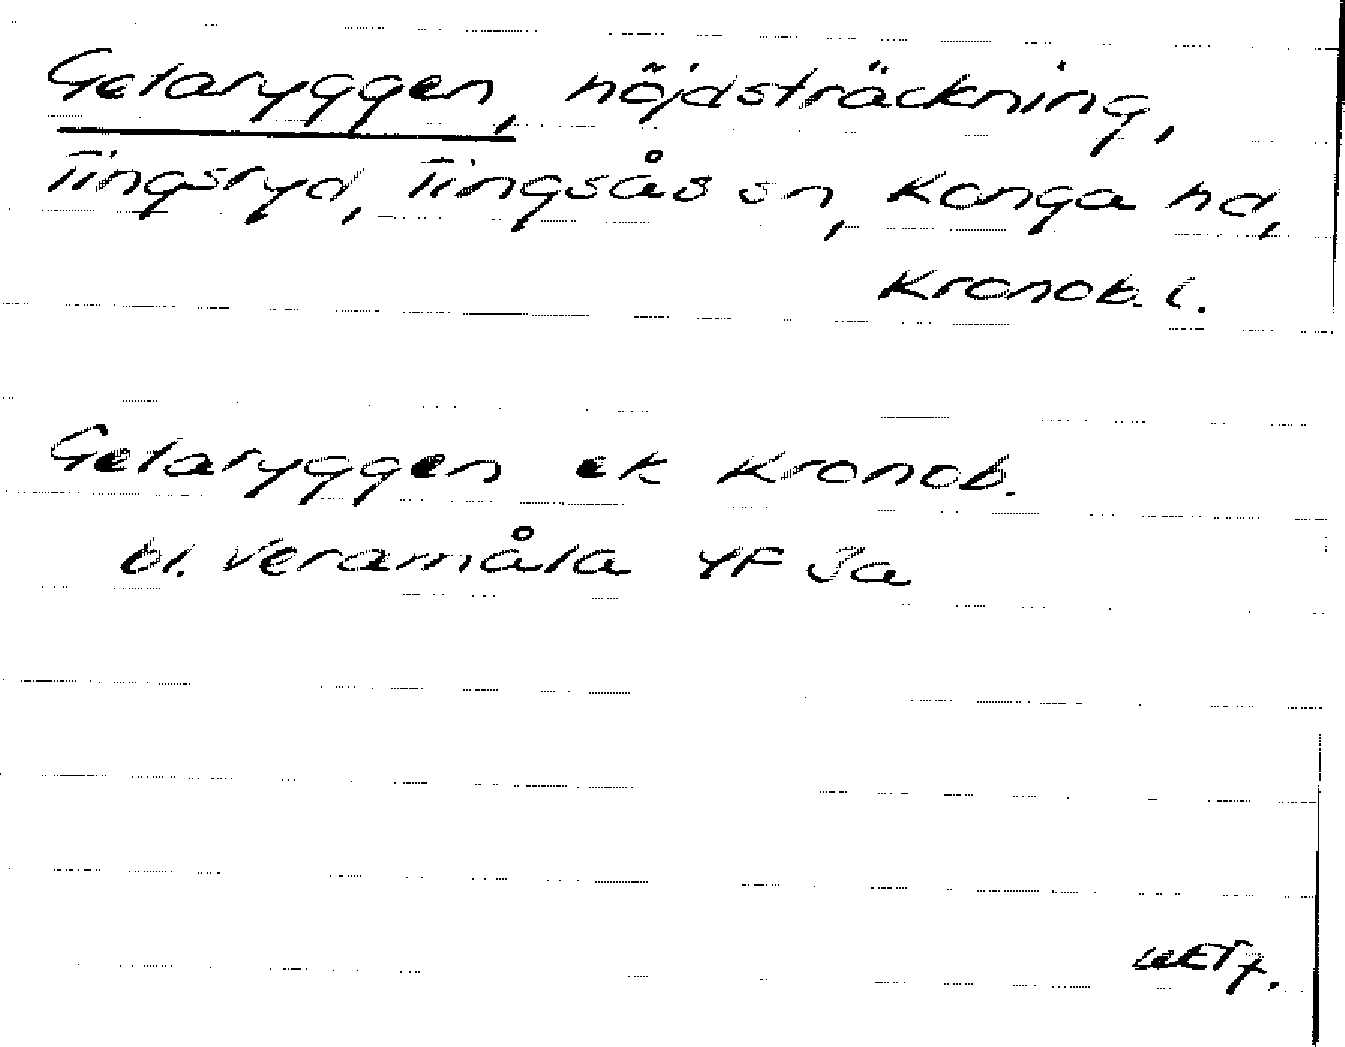 Getaryggen, höjdsträckning,
Tingsryd, Tingsås sn, Konga hd,
Kronob. l.
Getaryggen ek Kronob.
bl. Veramåla YF Ja